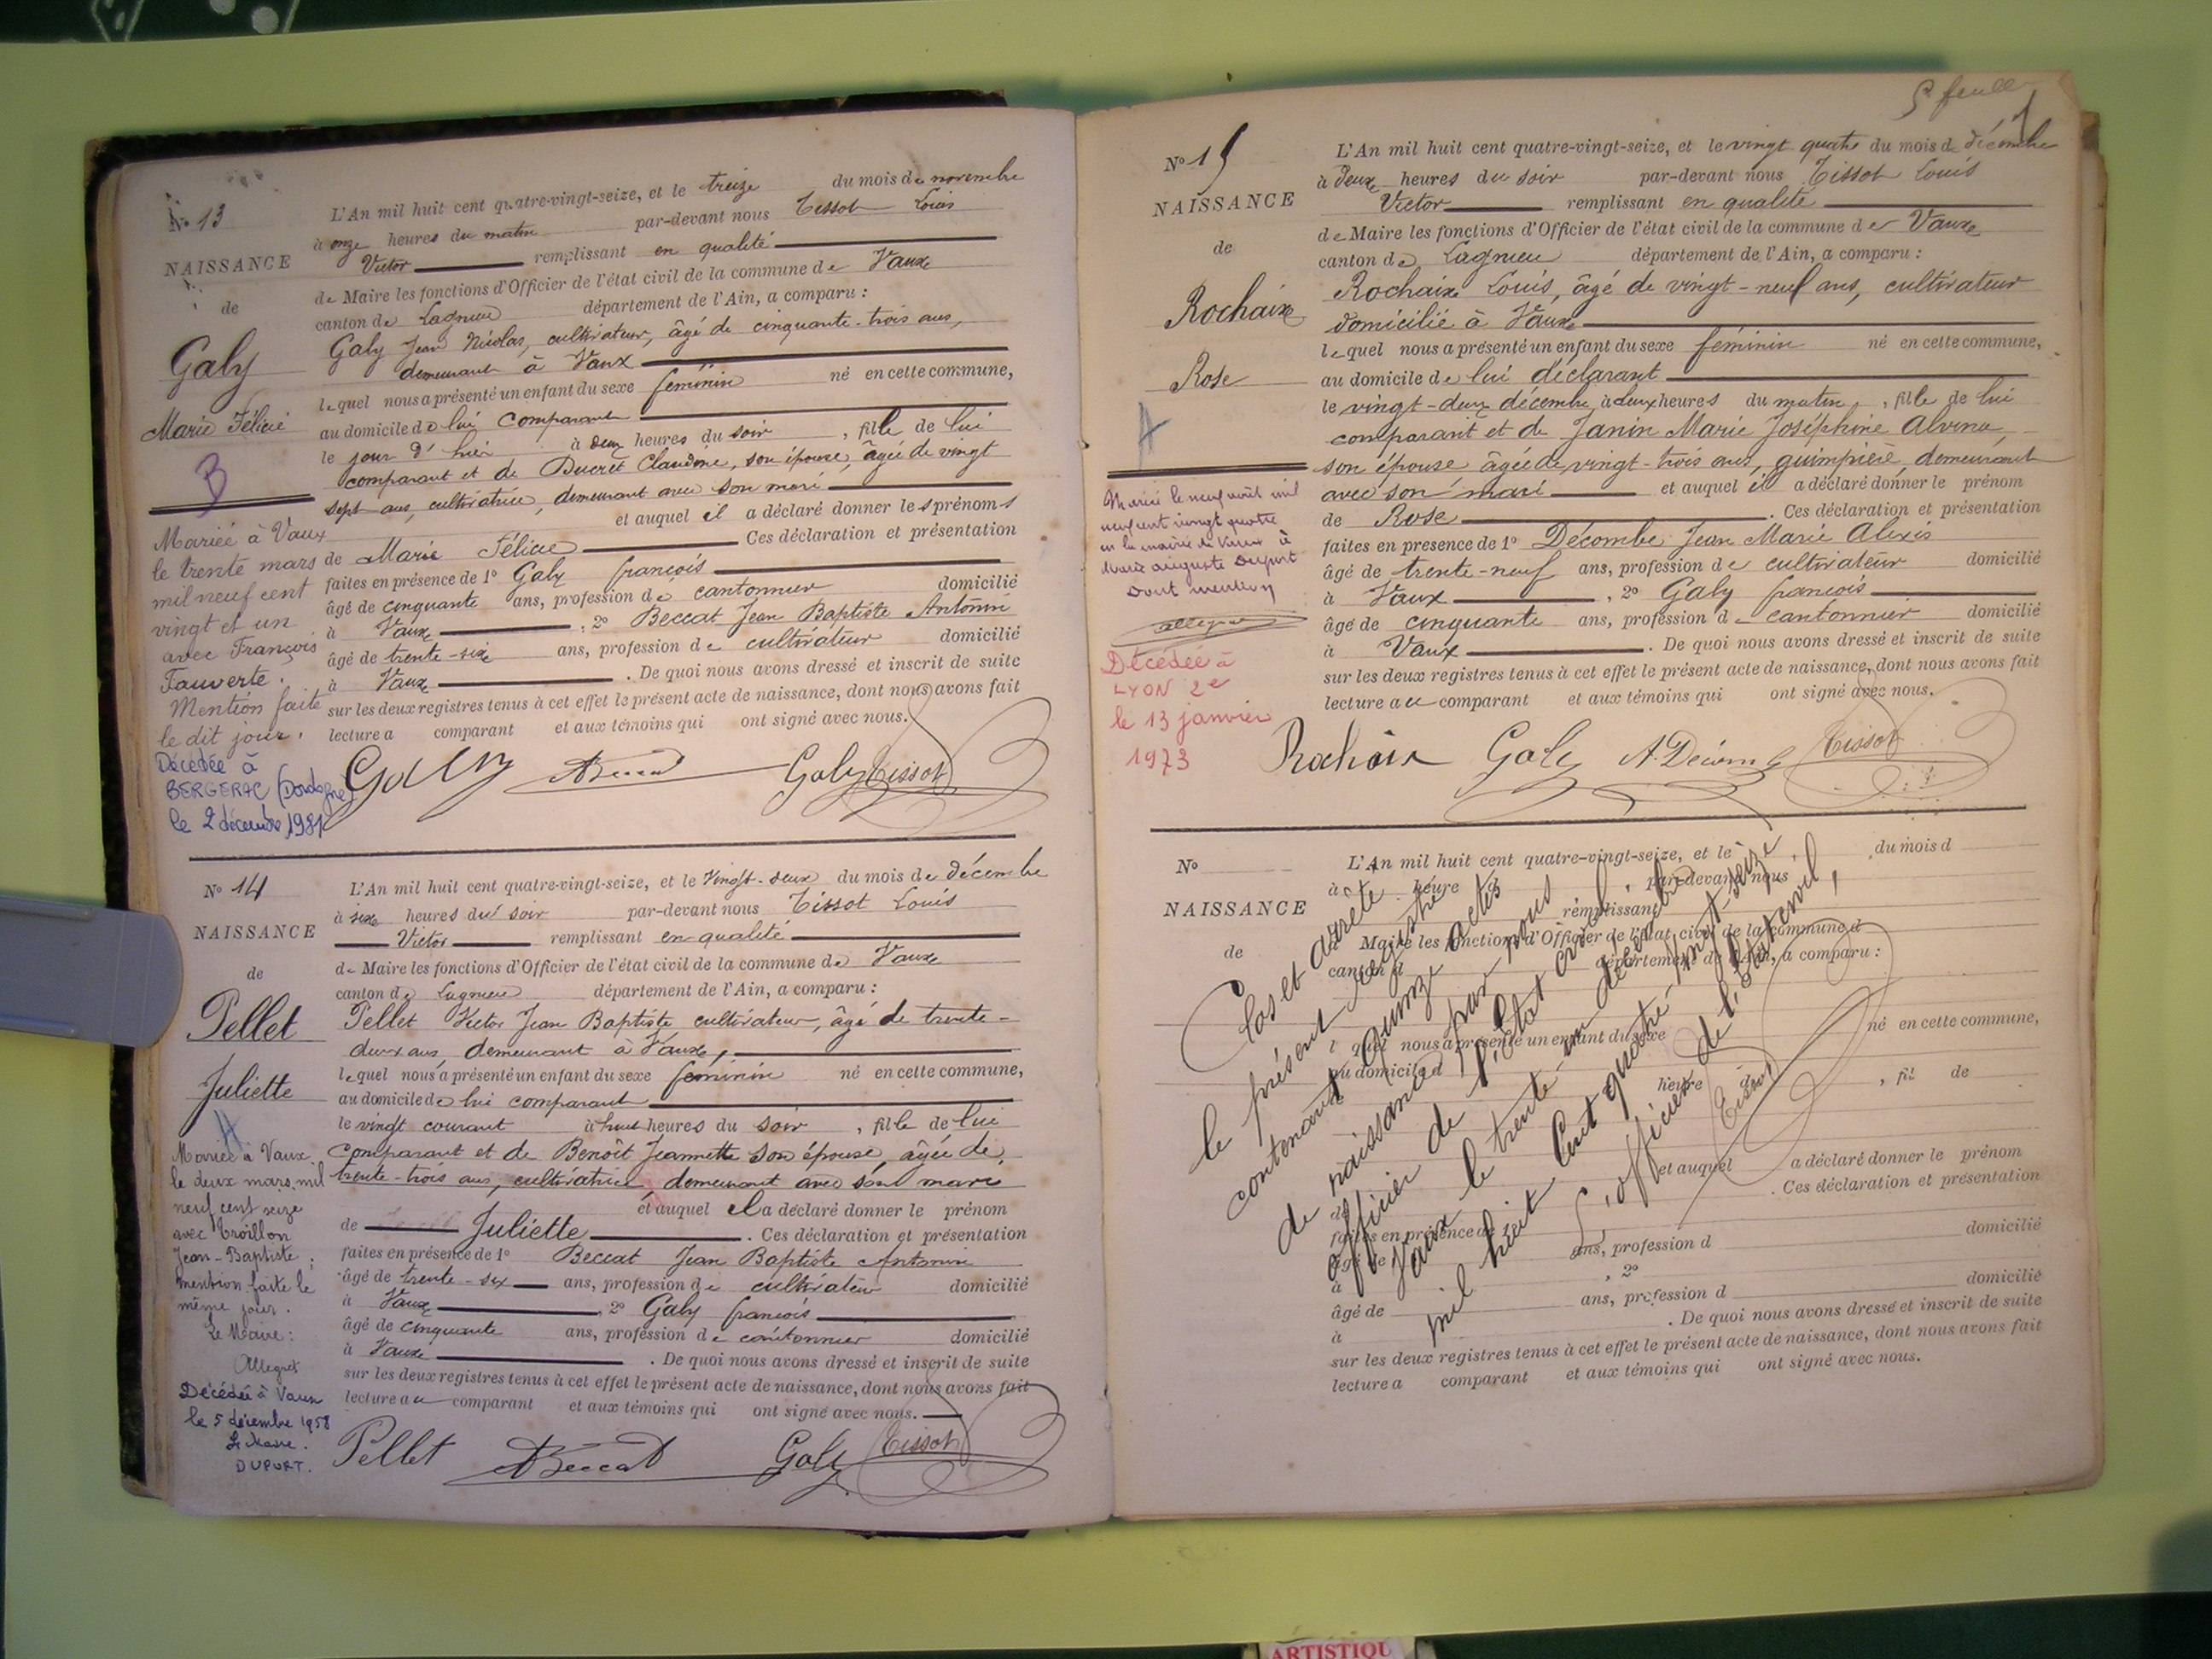 N° 13
NAISSANCE
de
Galy
Marie Félicie
B
Mariée à Vaux
le trente mars
mil neuf cent
vingt et un
avec François
Fauverte.
Mention faite
le dit jour.
Décédée à
BERGERAC (Dordogne)
le 2 décembre 1981
L'An mil huit cent quatre-vingt-seize, et le treize du mois de novembre
à onze heures du matin par-devant nous Tissot Louis
Victor remplissant en qualité
de Maire les fonctions d'Officier de l'état civil de la commune de Vaux
canton de Lagnieu département de l'Ain, a comparu :
Galy Jean Nicolas, cultivateur, âgé de cinquante-trois ans,
demeurant à Vaux
lequel nous a présenté un enfant du sexe féminin né en cette commune,
au domicile de lui comparant
le jour d'hier à deux heures du soir, fille de lui
comparant et de Ducret Claudine, son épouse, âgée de vingt
sept ans, cultivatrice, demeurant avec son mari
et auquel il a déclaré donner les prénoms
de Marie Félicie Ces déclaration et présentation
faites en présence de 1° Galy françois
âgé de cinquante ans, profession de cantonnier domicilié
à Vaux, 2° Beccat Jean Baptiste Antonin
âgé de trente-six ans, profession de cultivateur domicilié
à Vaux. De quoi nous avons dressé et inscrit de suite
sur les deux registres tenus à cet effet le présent acte de naissance, dont nous avons fait
lecture a comparant et aux témoins qui ont signé avec nous.
Galy ABeccat Galy Tissot
N° 14
NAISSANCE
de
Pellet
Juliette
A
Mariée à Vaux
le deux mars mil
neuf cent seize
avec Troillon
Jean-Baptiste ;
mention faite le
même jour.
Le Maire :
Allegret
Décédée à Vaux
le 5 décembre 1958
Le Maire.
DUPORT.
L'An mil huit cent quatre-vingt-seize, et le Vingt-deux du mois de décembre
à six heures du soir par-devant nous Tissot Louis
Victor remplissant en qualité
de Maire les fonctions d'Officier de l'état civil de la commune de Vaux
canton de Lagnieu département de l'Ain, a comparu :
Pellet Victor Jean Baptiste cultivateur, âgé de trente-
deux ans, demeurant à Vaux,
lequel nous a présenté un enfant du sexe féminin né en cette commune,
au domicile de lui comparant
le vingt courant à huit heures du soir, fille de lui
comparant et de Benoît Jeannette son épouse, âgée de
trente-trois ans, cultivatrice, demeurant avec son mari
et auquel il a déclaré donner le prénom
de Juliette. Ces déclaration et présentation
faites en présence de 1° Beccat Jean Baptiste Antonin
âgé de trente-six ans, profession de cultivateur domicilié
à Vaux, 2° Galy françois
âgé de cinquante ans, profession de cantonnier domicilié
à Vaux. De quoi nous avons dressé et inscrit de suite
sur les deux registres tenus à cet effet le présent acte de naissance, dont nous avons fait
lecture au comparant et aux témoins qui ont signé avec nous.
Pellet ABeccat Galy Tissot
N° 15
NAISSANCE
de
Rochaix
Rose
A
Mariée le neuf août mil
neuf cent vingt quatre
en la mairie de Vaux à
Marie Auguste Duport
Dont mention
Allegret
Décédée à
LYON 2e
le 13 janvier
1973
5e feuille
L'An mil huit cent quatre-vingt-seize, et le vingt quatre du mois de décembre
à deux heures du soir par-devant nous Tissot Louis
Victor remplissant en qualité
de Maire les fonctions d'Officier de l'état civil de la commune de Vaux
canton de Lagnieu département de l'Ain, a comparu :
Rochaix Louis, âgé de vingt-neuf ans, cultivateur
domicilié à Vaux
lequel nous a présenté un enfant du sexe féminin né en cette commune,
au domicile de lui déclarant
le vingt-deux décembre, à deux heures du matin, fille de lui
comparant et de Janin Marie Joséphine Alvina,
son épouse âgée de vingt-trois ans, guimpière, demeurant
avec son mari et auquel il a déclaré donner le prénom
de Rose. Ces déclaration et présentation
faites en presence de 1° Décombe Jean Marie Alexis
âgé de trente-neuf ans, profession de cultivateur domicilié
à Vaux, 2° Galy françois
âgé de cinquante ans, profession de cantonnier domicilié
à Vaux. De quoi nous avons dressé et inscrit de suite
sur les deux registres tenus à cet effet le présent acte de naissance, dont nous avons fait
lecture au comparant et aux témoins qui ont signé avec nous.
Rochaix Galy A. Décombe Tissot
N°
NAISSANCE
de
L'An mil huit cent quatre-vingt-seize, et le du mois d
à heure d par-devant nous
remplissant
Maire les fonctions d'Officier de l'état civil de la commune d
canton d département de l'Ain, a comparu :
l quel nous a présenté un enfant du sexe né en cette commune,
au domicile d
heure d, fil de
et auquel a déclaré donner le prénom
de. Ces déclaration et présentation
faites en présence de
âgé de ans, profession d domicilié
à, 2°
âgé de ans, profession d domicilié
à. De quoi nous avons dressé et inscrit de suite
sur les deux registres tenus à cet effet le présent acte de naissance, dont nous avons fait
lecture a comparant et aux témoins qui ont signé avec nous.
Clos et arrêté
le présent registre
contenant quinze actes
de naissance par nous
officier de l'état civil,
Vaux le trente-un décembre
mil huit cent quatre-vingt-seize
L'officier de l'état civil,
Tissot
ARTISTIQU